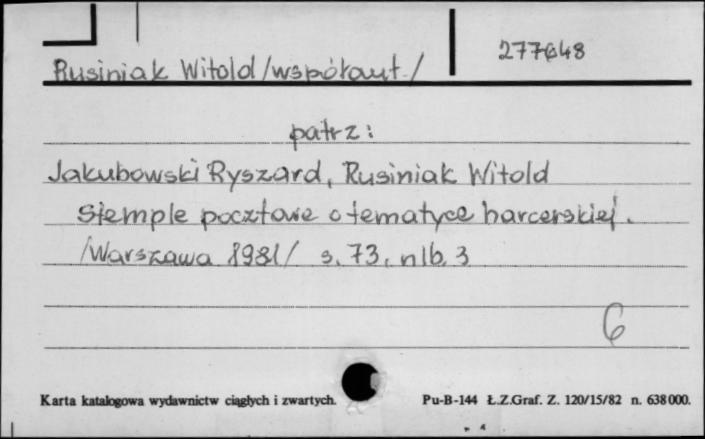 Rusiniak Witold /współaut./ 277648
patrz:
Jakubowski Ryszard, Rusiniak Witold
Stemple pocztowe o tematyce harcerskiej.
/Warszawa 1981/ s. 73, nlb. 3
6
Karta katalogowa wydawnictw ciągłych i zwartych. Pu-B-144 Ł.Z.Graf. Z. 120/15/82 n. 638000.